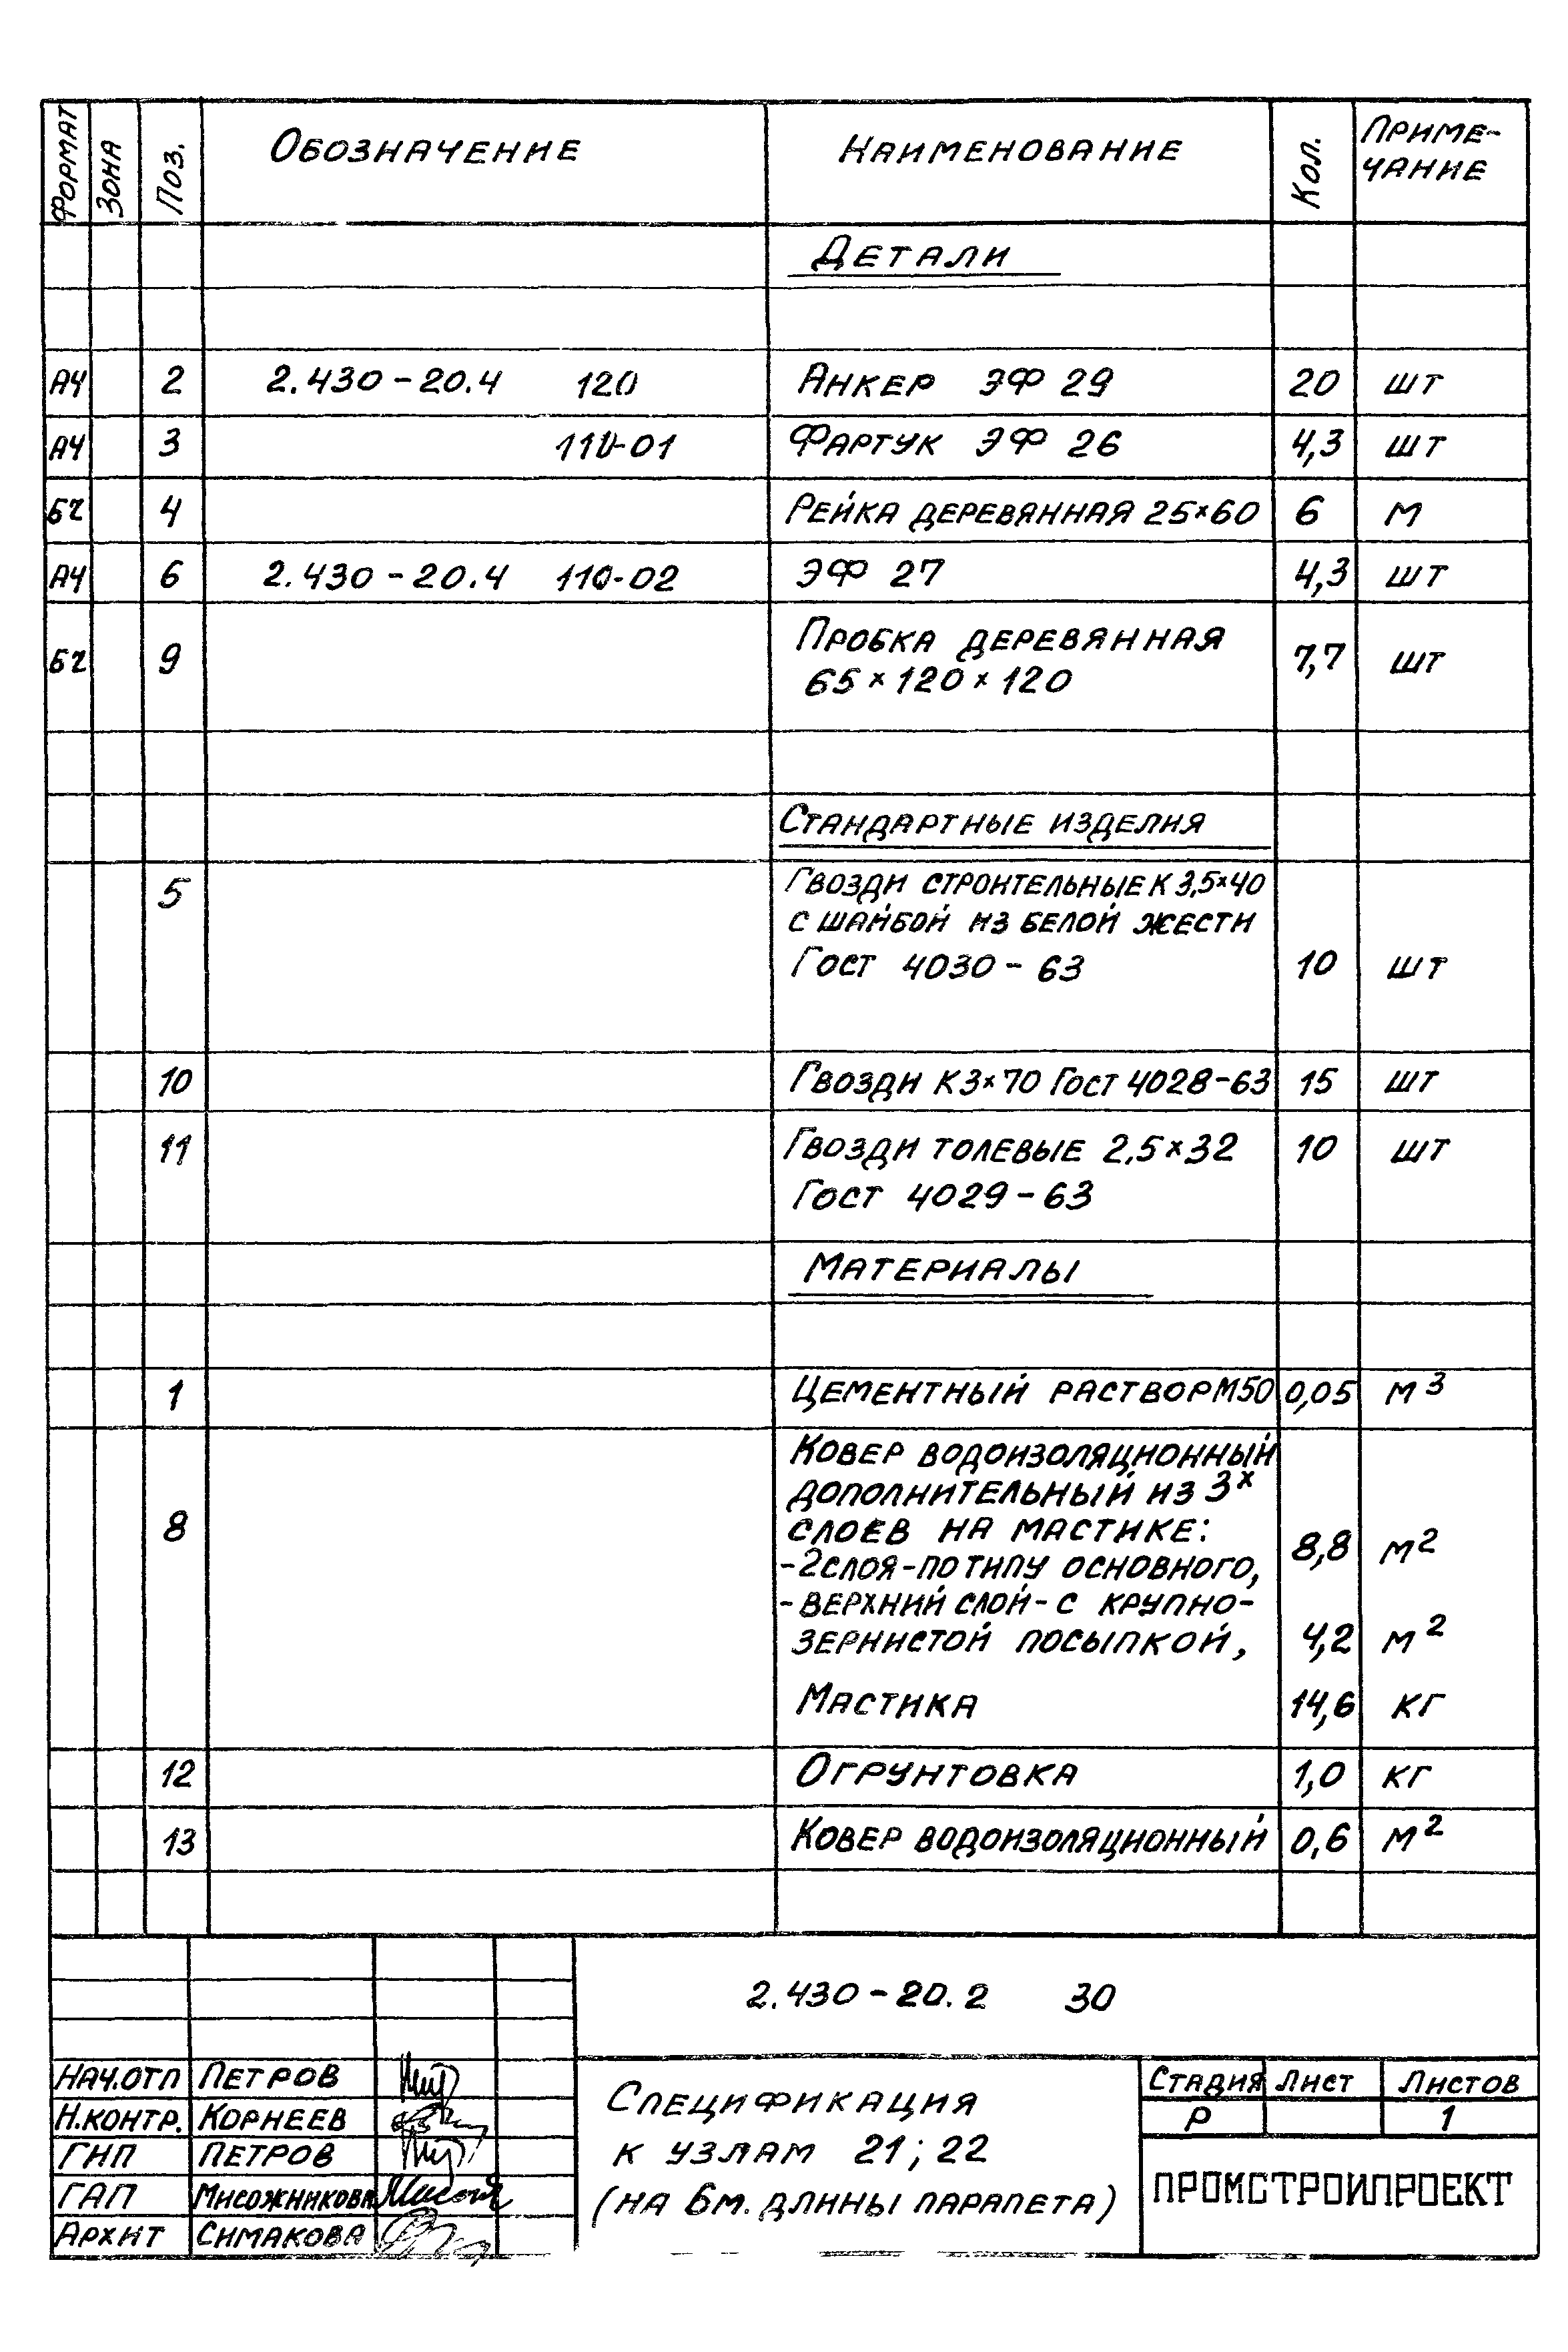 Формат Зона Поз. Обозначение Наименование Кол. Приме-
чание
Детали
А4 2 2.430-20.4 120 Анкер ЭФ 29 20 шт
А4 3 110-01 Фартук ЭФ 26 4,3 шт
БЧ 4 Рейка деревянная 25×60 6 м
А4 6 2.430-20.4 110-02 ЭФ 27 4,3 шт
БЧ 9 Пробка деревянная
65×120×120 7,7 шт
Стандартные изделия
5 Гвозди строительные К 3,5×40
с шайбой из белой жести
Гост 4030-63 10 шт
10 Гвозди К3×70 Гост 4028-63 15 шт
11 Гвозди толевые 2,5×32 10 шт
Гост 4029-63
Материалы
1 Цементный раствор М50 0,05 м³
8 Ковер водоизоляционный
дополнительный из 3х
слоев на мастике:
-2 слоя-по типу основного, 8,8 м²
-верхний слой-с крупно-
зернистой посыпкой, 4,2 м²
Мастика 14,6 кг
12 Огрунтовка 1,0 кг
13 Ковер водоизоляционный 0,6 м²
2.430-20.2 30
Нач.отп Петров
Н.контр. Корнеев
ГИП Петров
ГАП Мисожникова
Архит Симакова
Спецификация
к узлам 21; 22
(на 6м. длины парапета)
Стадия Лист Листов
Р 1
ПРОМСТРОЙПРОЕКТ